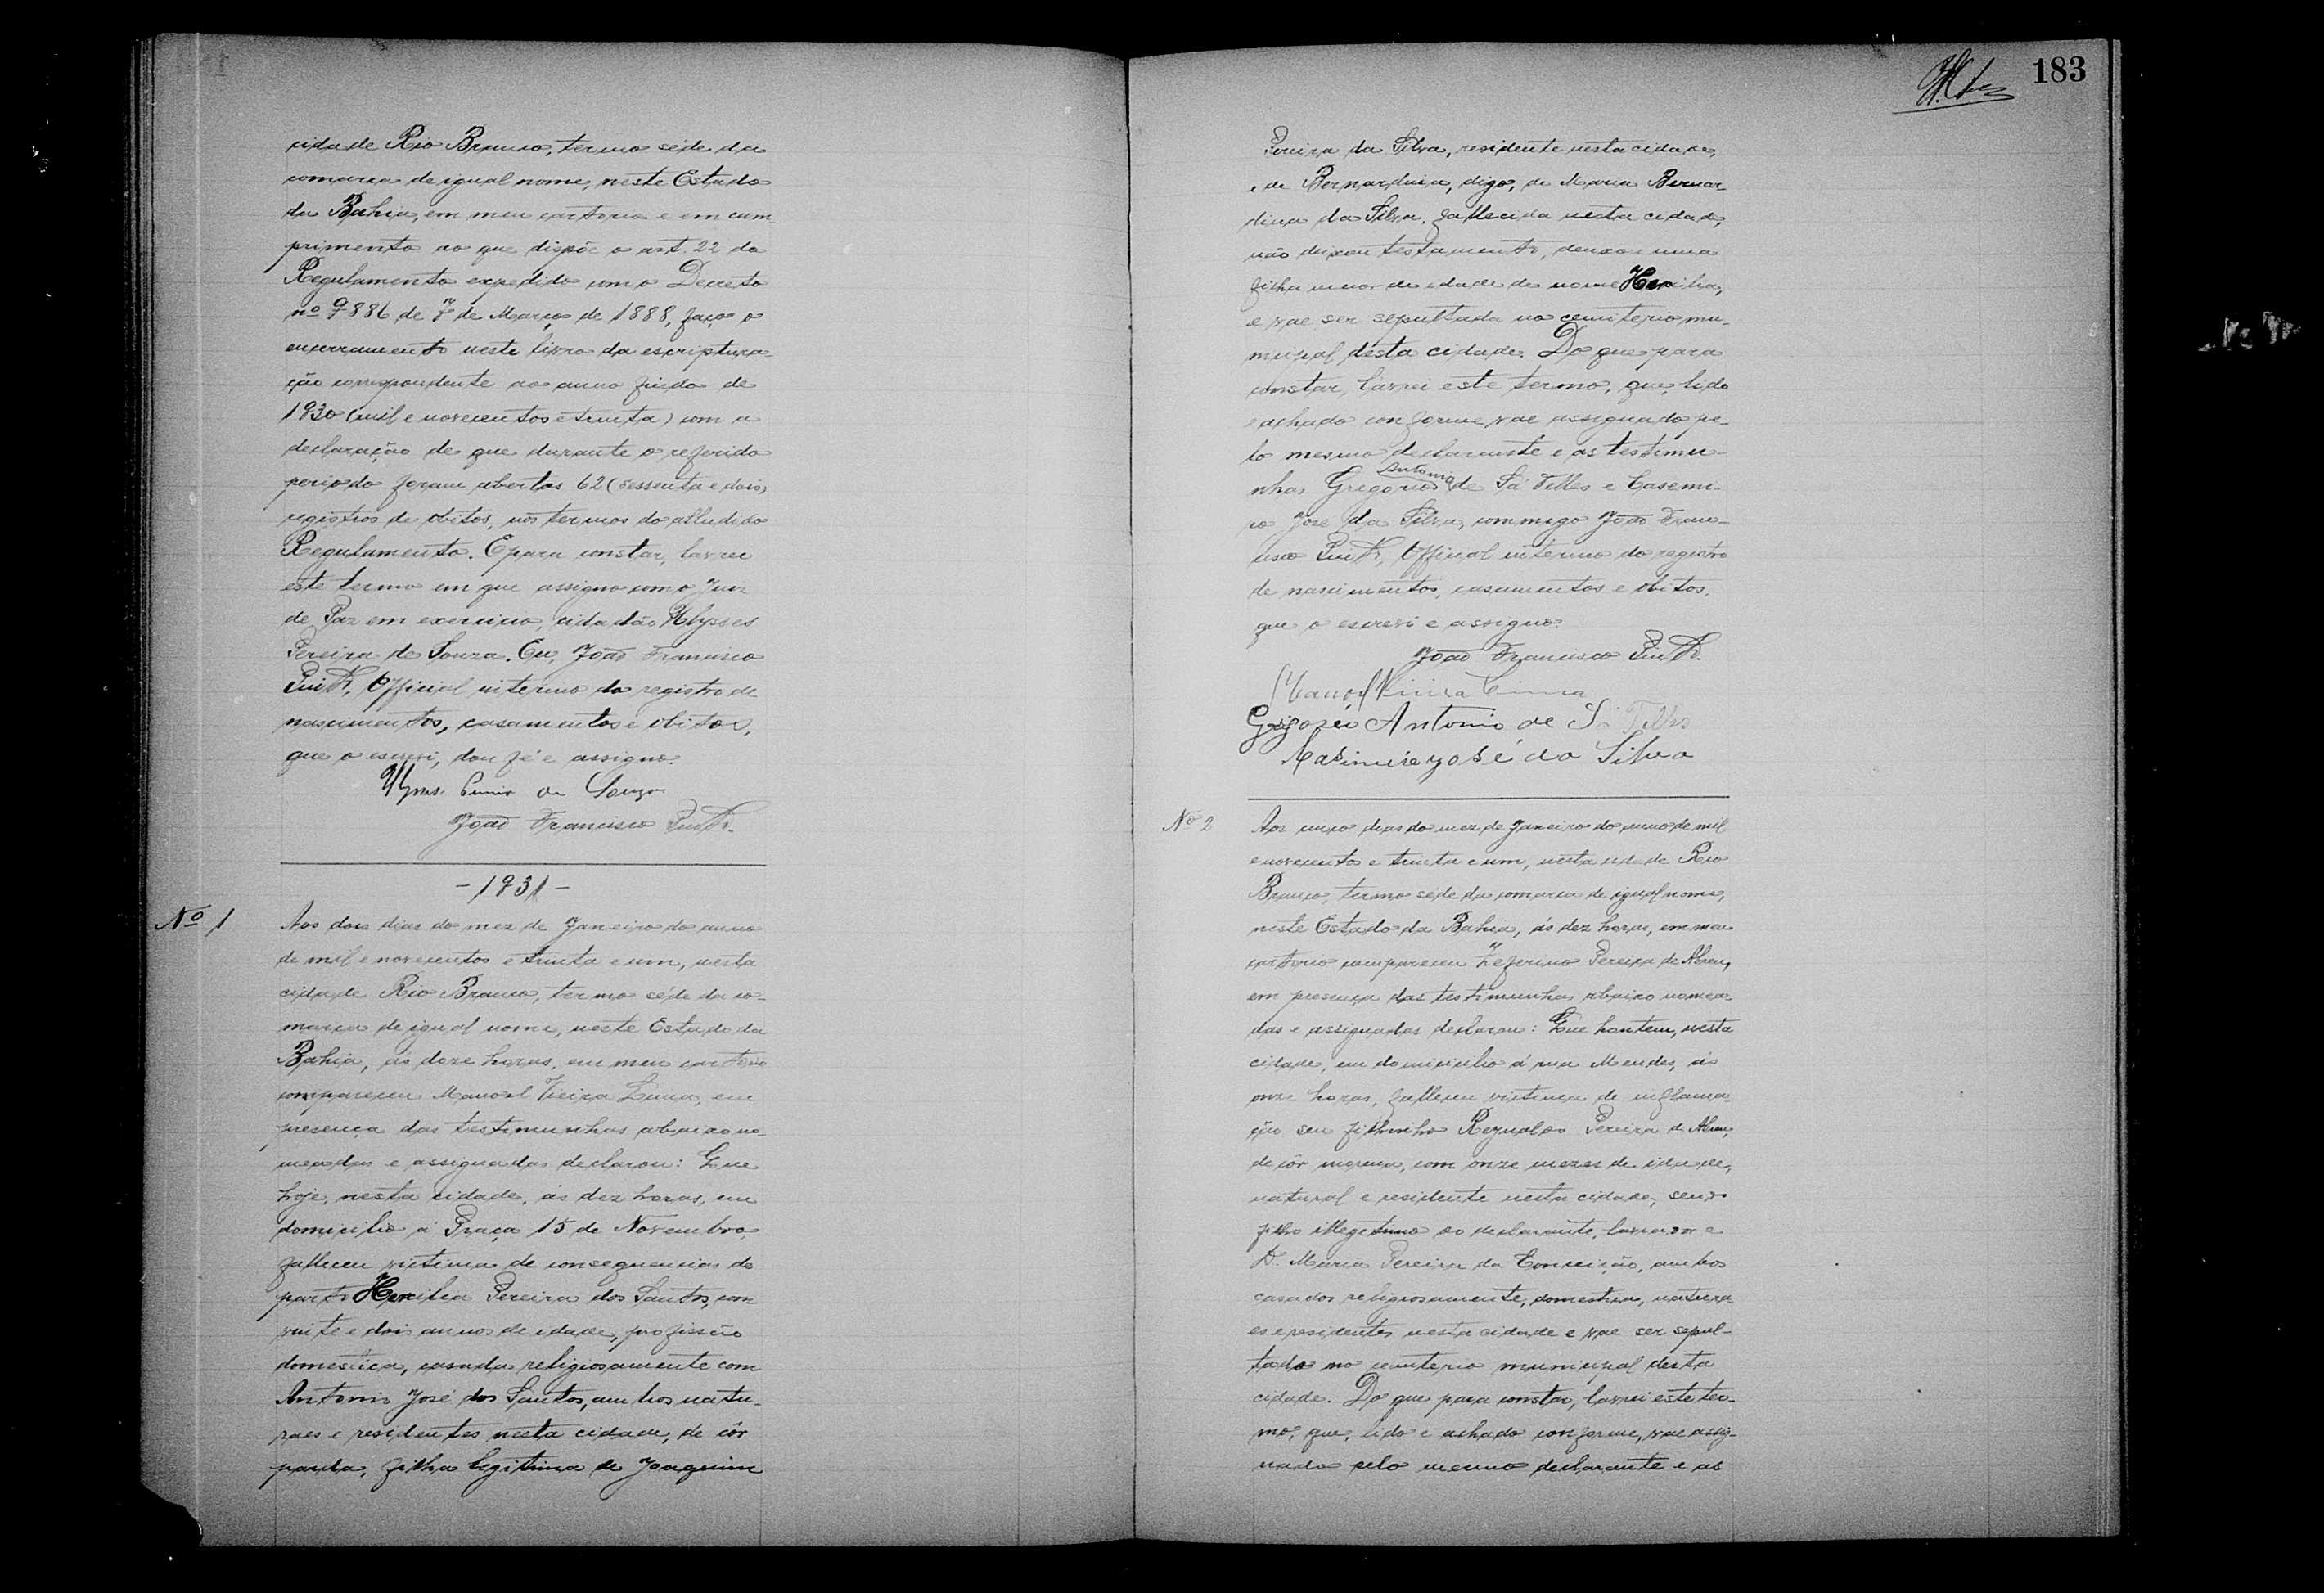 cidade Rio Branco, termo séde da
comarca de igual nome, neste Estado
da Bahia, em meu cartorio e em cum-
primento ao que dispõe o art. 22 do
Regulamento expedido com o Decreto
nº 9886 de 7 de Março de 1888, faço o
encerramento neste livro da escriptura-
ção correspondente ao anno findo de
1930 (mil e novecentos e trinta) com a
declaração de que durante o referido
periodo foram abertos 62 (sessenta e dois)
registros de obitos, nos termos do alludido
Regulamento. E para constar, lavrei
este termo em que assigno com o Juiz
de Paz em exercicio, cidadão Ulysses
Pereira de Souza. Eu, João Francisco
Official interino do registro de
nascimentos, casamentos e obitos,
que o escrevi, dou fé e assigno.
de Souza
João Francisco
-1931-
Nº 1
Aos dois dias do mez de Janeiro do anno
de mil e novecentos e trinta e um, nesta
cidade Rio Branco, termo séde da co-
marca de igual nome, neste Estado da
Bahia, ás doze horas, em meu cartorio
compareceu Manoel Vieira Lima, em
presença das testimunhas abaixo no-
meadas e assignadas declarou: Que
hoje, nesta cidade, ás dez horas, em
domicilio á Praça 15 de Novembro,
falleceu victima de consequencias do
parto Hercilia Pereira dos Santos, com
vinte e dois annos de edade, profissão
domestica, casada religiosamente com
Antonio José dos Santos, ambos natu-
raes e residentes nesta cidade, de côr
parda, filha legitima de Joaquim
183
Pereira da Silva, residente nesta cidade,
e de Bernardina, digo, de Maria Bernar
dina da Silva, fallecida nesta cidade,
não deixou testamento, deixou uma
filha menor de edade de nome Hercilia,
e vae ser sepultada no cemiterio mu-
nicipal désta cidade. Do que para
constar, lavrei este termo, que, lido
e achado conforme vae assignado pe-
lo mesmo declarante e as testimu-
nhas Gregorio Antonio de Sá Telles e Casemi-
ro José da Silva, commigo João Fran-
cisco Official interino do registro
de nascimentos, casamentos e obitos,
que o escrevi e assigno.
João Francisco
Manoel Vieira Lima
Grigorio Antonio de Sá Telles
Casimiro José da Silva
Nº 2
Aos cinco dias do mez de Janeiro do anno de mil
e novecentos e trinta e um, nesta cidade Rio
Branco, termo séde da comarca de igual nome,
neste Estado da Bahia, ás dez horas, em meu
cartorio compareceu Zeferino Pereira de Abreu,
em presença das testimunhas abaixo nomea-
das e assignadas declarou: Que hontem, nesta
cidade, em domicilio á rua Mendes, ás
onze horas, falleceu victima de inflama-
ção seu filhinho Reynaldo Pereira de Abreu,
de côr morena, com onze mezes de idade,
natural e residente nesta cidade, sendo
filho illegetimo do declarante, lavrador e
D. Maria Pereira da Conceição, ambos
casados religiosamente, domestica, natura-
es e residentes nesta cidade e vae ser sepul-
tado no cemiterio municipal desta
cidade. Do que para constar, lavrei este ter-
mo, que, lido e achado conforme, vae assig-
nado pelo mesmo declarante e as